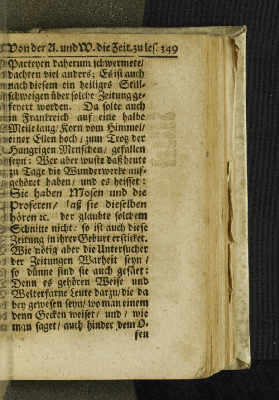 Von der A. und W. die Zeit. zu les. 349
Parteyen daherum schwermete/
dachten viel anders; Es ist auch
nach diesem ein heiliges Still-
schweigen über solche Zeitung ge-
feyert worden. Da solte auch
in Frankreich auf eine halbe
Meile lang/ Korn vom Himmel/
einer Ellen hoch/ zum Trog der
Hungrigen Menschen/ gefallen
seyn: Wer aber wuste daß heute
zu Tage die Wunderwerke auf-
gehöret haben/ und es heisset:
Sie haben Mosen und die
Profeten/ laß sie dieselben
hören ꝛc. der glaubte solchem
Schnitte nicht: so ist auch diese
Zeitung in ihrer Geburt ersticket.
Wie nötig aber die Untersucher
der Zeitungen Warheit seyn/
so dünne sind sie auch gesäet:
Denn es gehören Weise und
Welterfarne Leute darzu/ die da
bey gewesen seyn/ wo man einem
denn Gecken weiset/ und/ wie
man saget/ auch hinder dem O-
fen